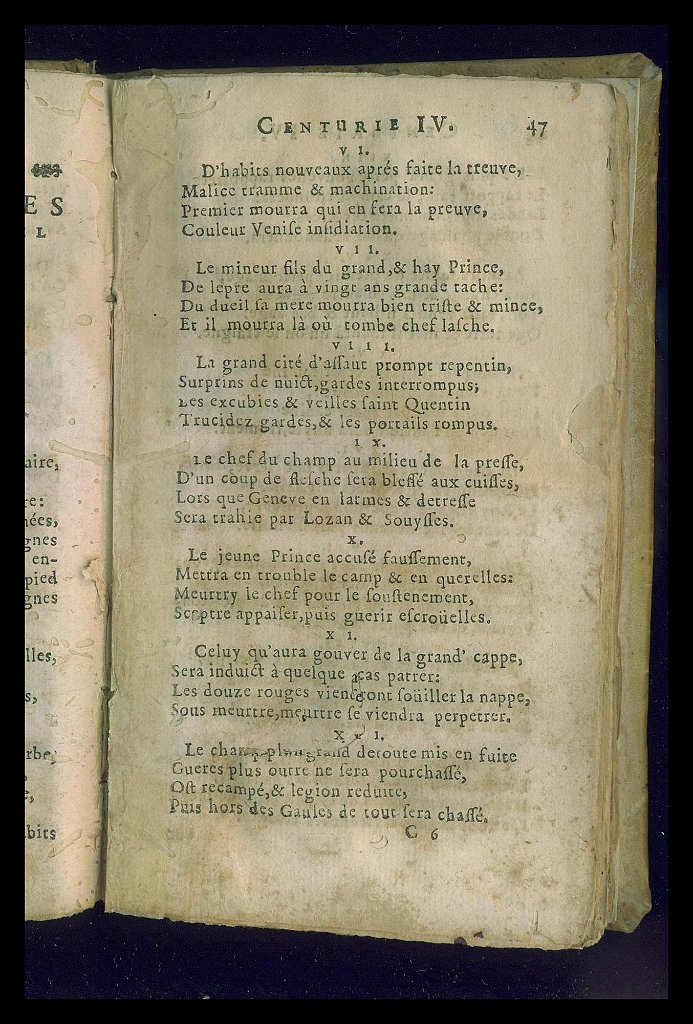 ES
L
aire,
re:
ées,
gnes
en-
pied
gnes
lles,
s,
rbe,
e,
abits
CENTURIE IV. 47
V I.
D'habits nouveaux aprés faite la treuve,
Malice tramme & machination:
Premier mourra qui en fera la preuve,
Couleur Veniſe inſidiation.
V I I.
Le mineur fils du grand,& hay Prince,
De lepre aura à vingt ans grande tache:
Du dueil ſa mere mourra bien triſte & mince,
Et il mourra là où tombe chef laſche.
V I I I.
La grand cité d'aſſaut prompt repentin,
Surprins de nuict,gardes interrompus;
Les excubies & veilles ſaint Quentin
Trucidez gardes,& les portails rompus.
I X.
Le chef du champ au milieu de la preſſe,
D'un coup de fleſche ſera bleſſé aux cuiſſes,
Lors que Geneve en larmes & detreſſe
Sera trahie par Lozan & Souyſſes.
X.
Le jeune Prince accuſé fauſſement,
Mettra en trouble le camp & en querelles:
Meurtry le chef pour le ſouſtenement,
Sceptre appaiſer,puis guerir eſcroüelles.
X I.
Celuy qu'aura gouver de la grand' cappe,
Sera induict à quelque cas patrer:
Les douze rouges viendront ſoüiller la nappe,
Sous meurtre,meurtre ſe viendra perpetrer.
X I I.
Le champ plus grand deroute mis en fuite
Gueres plus outre ne ſera pourchaſſé,
Oſt recampé,& legion reduite,
Puis hors des Gaules de tout ſera chaſſé.
C 6